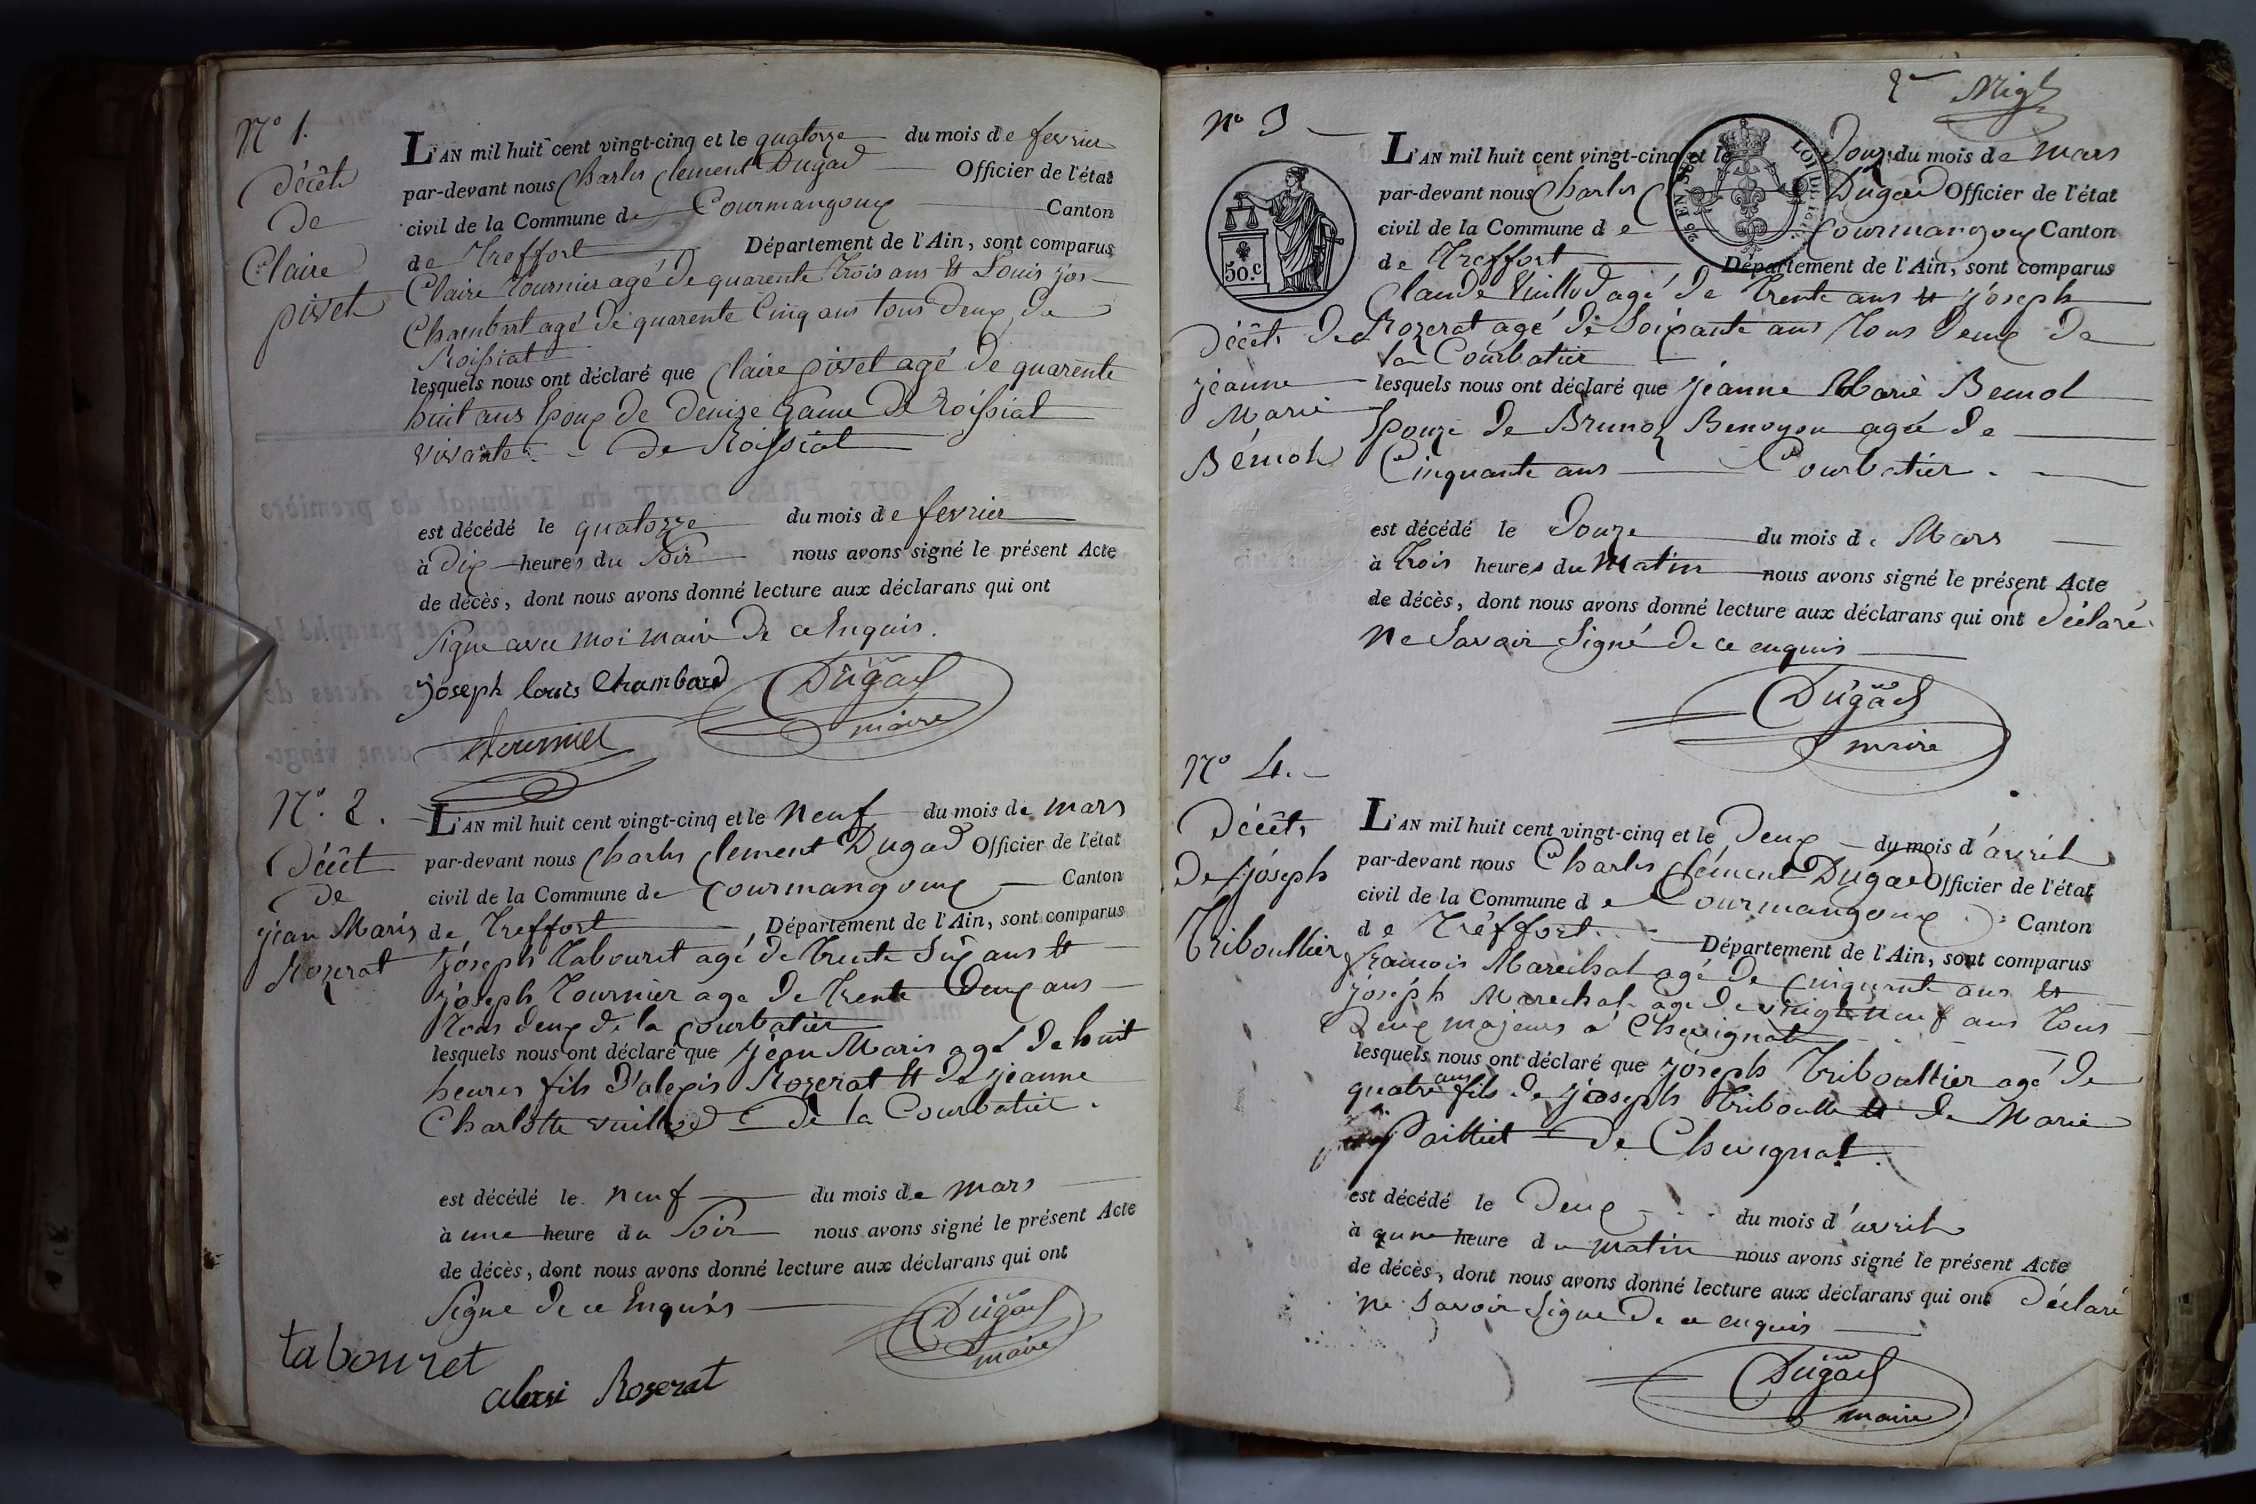 N.° 1.
Décêt
de
Claire
pivet
L'AN mil huit cent vingt-cinq et le quatorze du mois de fevrier
par-devant nous Charles Clement Dugad Officier de l'état
civil de la Commune de Courmangoux Canton
de Treffort Département de l'Ain, sont comparus
Claire Tournier agé de quarente trois ans et Louis jos
Chambart agé de quarente Cinq ans tous deux de
Roissiat
lesquels nous ont déclaré que Claire pivet agé de quarente
huit ans Epoux de denize de Roissiat
vivante de Roissiat
est décédé le quatorze du mois de fevrier
à Dix heures du Soir nous avons signé le présent Acte
de décès, dont nous avons donné lecture aux déclarans qui ont
Signe avec moi maire de ce Enquis.
joseph louis Chambard Dugad
maire
tournier
N.° 2.
Décêt
de
jean Marie
Rozerat
L'AN mil huit cent vingt-cinq et le Neuf du mois de mars
par-devant nous Charles Clement Dugad Officier de l'état
civil de la Commune de Courmangoux Canton
de Treffort Département de l'Ain, sont comparus
joseph Tabouret agé de trente Six ans et
joseph Tournier agé de trente Deux ans
tous deux de la Courbatier
lesquels nous ont déclaré que jean Marie agé de huit
heures fils d'alexis Rozerat et de jeanne
Charlotte vuillod de la Courbatier.
est décédé le neuf du mois de mars
à une heure du Soir nous avons signé le présent Acte
de décès, dont nous avons donné lecture aux déclarans qui ont
Signe de ce Enquis
Dugad
maire
tabouret
alexi Rozerat
2me
N° 3
50.c
Décêt de
jeanne
Marie
Bémol
L'AN mil huit cent vingt-cinq et le Douze du mois de mars
par-devant nous Charles C Dugad Officier de l'état
civil de la Commune de Courmangoux Canton
de Treffort Département de l'Ain, sont comparus
Claude Vuillod agé de trente ans et joseph
Rozerat agé de Soixante ans tous deux de
la Courbatier
lesquels nous ont déclaré que jeanne Marie Bemol
Epouze de Bruno Benoyon agée de
Cinquante ans Courbatier.
est décédé le Douze du mois de Mars
à trois heures du Matin nous avons signé le présent Acte
de décès, dont nous avons donné lecture aux déclarans qui ont déclaré
ne Savoir Signé de ce enquis
Dugad
maire
N° 4.
Décêt
de joséph
Triboullier
L'AN mil huit cent vingt-cinq et le Deux du mois d'avril
par-devant nous Charles Clément Dugad Officier de l'état
civil de la Commune de Courmangoux Canton
de Tréffort Département de l'Ain, sont comparus
francois Marechal agé de Cinquante ans et
joséph Marechal agé de vingt Neuf ans tous
Deux majeurs a Chevignat
lesquels nous ont déclaré que joséph Triboullier agé de
quatre ans fils de joseph Triboulle et de Marie
Paillet de Chevignat.
est décédé le Deux du mois d'avril
à une heure du matin nous avons signé le présent Acte
de décès, dont nous avons donné lecture aux déclarans qui ont Déclaré
ne Savoir Signe de ce enquis
Dugad
maire